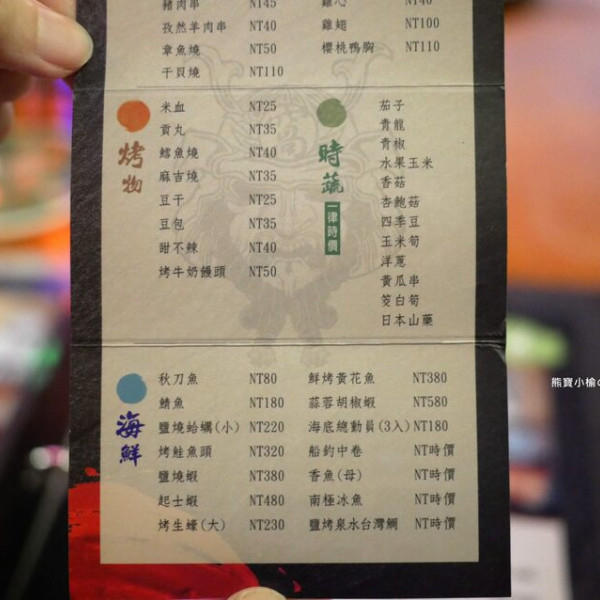 豬肉串 NT45
孜然羊肉串 NT40
章魚燒 NT50
干貝燒 NT110
雞心 NT40
雞翅 NT100
櫻桃鴨胸 NT110
烤物
米血 NT25
貢丸 NT35
鱈魚燒 NT40
麻吉燒 NT35
豆干 NT25
豆包 NT35
甜不辣 NT40
烤牛奶饅頭 NT50
時蔬
一律時價
茄子
青龍
青椒
水果玉米
香菇
杏鮑菇
四季豆
玉米筍
洋蔥
黃瓜串
筊白筍
日本山藥
海鮮
秋刀魚 NT80
鯖魚 NT180
鹽燒蛤蠣(小) NT220
烤鮭魚頭 NT320
鹽燒蝦 NT380
起士蝦 NT480
烤生蠔(大) NT230
鮮烤黃花魚 NT380
蒜蓉胡椒蝦 NT580
海底總動員(3入) NT180
船釣中卷 NT時價
香魚(母) NT時價
南極冰魚 NT時價
鹽烤泉水台灣鯛 NT時價
熊寶小榆の